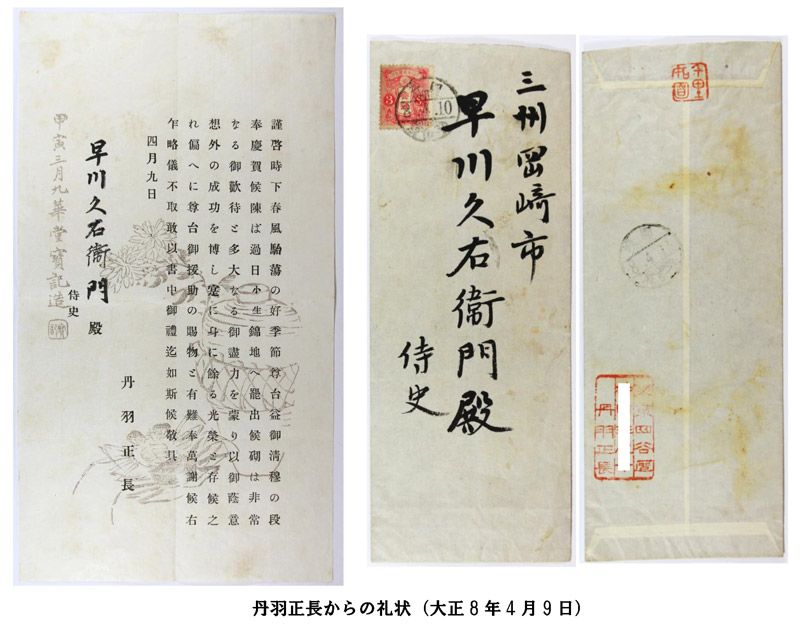 謹啓時下春風駘蕩の好季節尊台益御淸穆の段
奉慶賀候陳ば過日小生錦地へ罷出候砌は非常
なる御歡待と多大なる御盡力を蒙り以御蔭意
想外の成功を博し寔に身に餘る光榮と存候之
れ偏へに尊台御援助の賜物と有難奉萬謝候右
乍略儀不取敢以書中御禮迄如斯候敬具
四月九日
丹羽正長
早川久右衞門殿
侍史
甲寅三月九華堂寶記造
三州岡崎市
早川久右衞門殿
侍史
3
10
四谷
丹羽正長
丹羽正長からの礼状（大正8年4月9日）